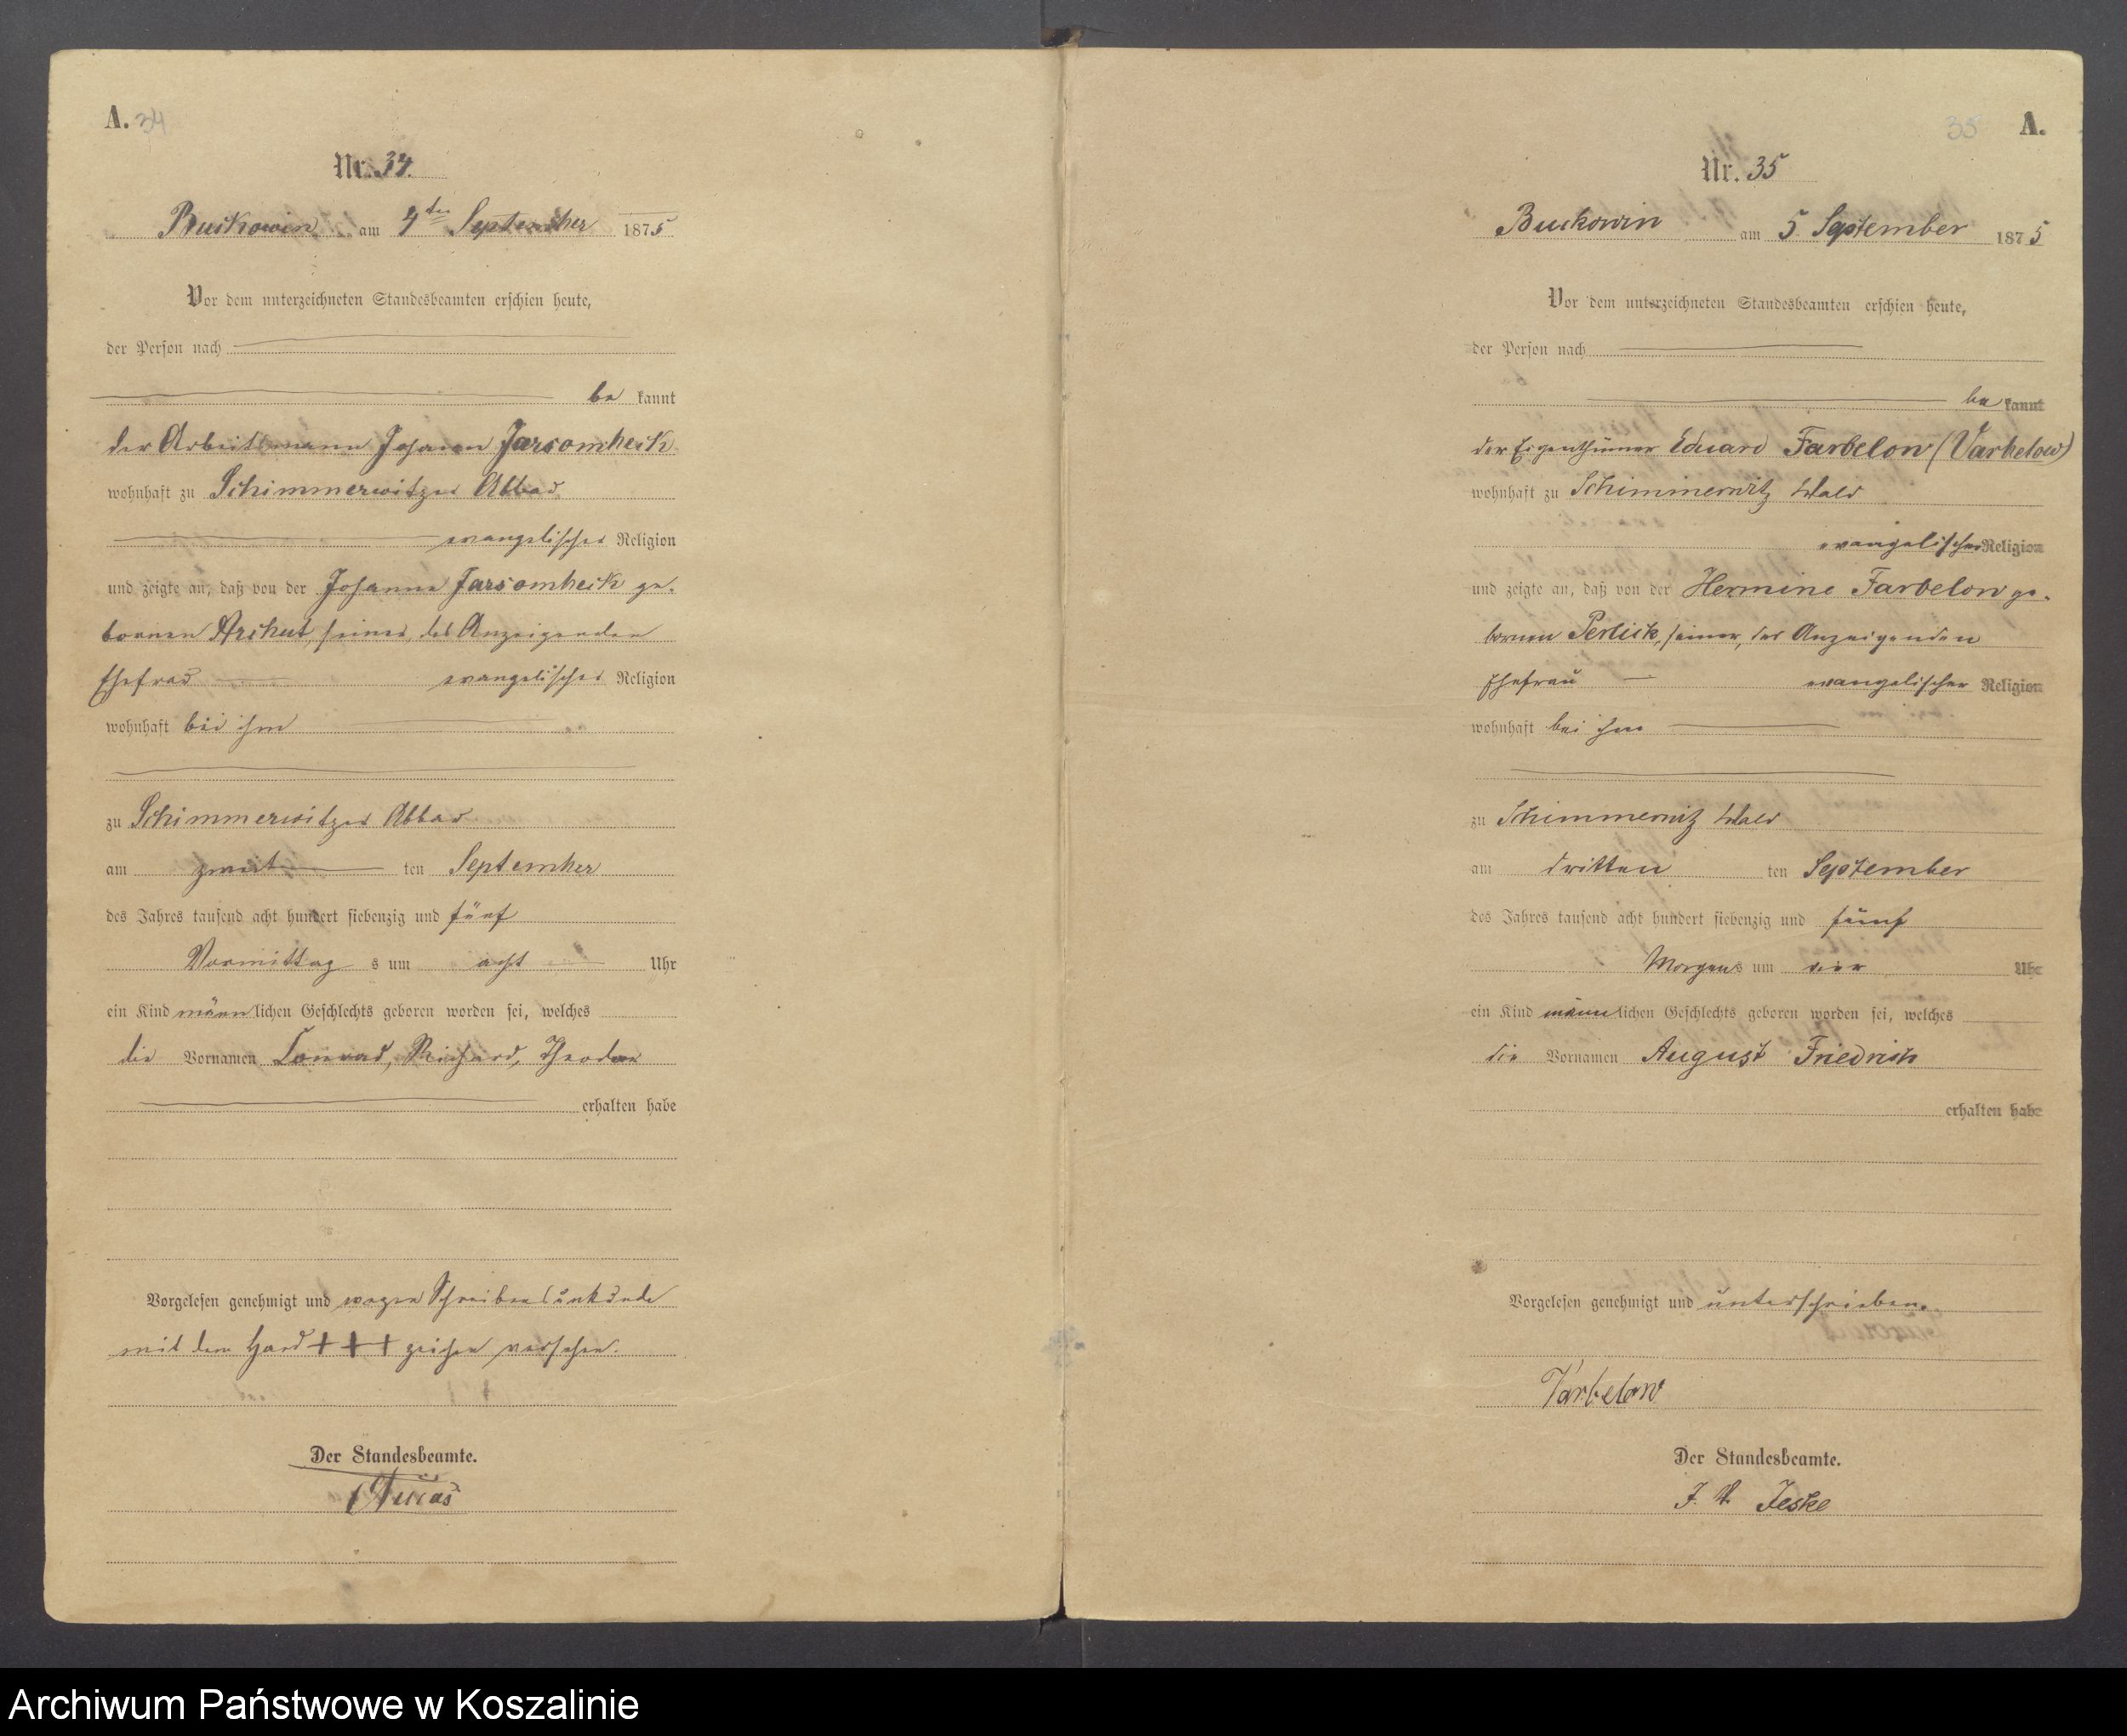 A. 34
Nr. 34.
Buckowin am 4ten September 1875
Vor dem unterzeichneten Standesbeamten erschien heute,
der Person nach
be kannt
der Arbeitsmann Johann Jarsombeck
wohnhaft zu Schimmerwitzer Abbau
evangelischer Religion
und zeigte an, daß von der Johanna Jarsombeck ge-
bornen Archut, seiner, des Anzeigenden
Ehefrau evangelischer Religion
wohnhaft bei ihm
zu Schimmerwitzer Abbau
am zweit ten September
des Jahres tausend acht hundert siebenzig und fünf
Vormittag s um acht Uhr
ein Kind männlichen Geschlechts geboren worden sei, welches
die Vornamen Conrad, Richard, Theodor
erhalten habe
Vorgelesen genehmigt und wegen Schreibensunkunde
mit dem Hand +++ zeichen versehen.
Der Standesbeamte.
35 A.
Nr. 35
Buckowin am 5 September 1875
Vor dem unterzeichneten Standesbeamten erschien heute,
der Person nach
be kannt
der Eigenthümer Eduard Farbelow (Varbelow)
wohnhaft zu Schimmerwitz Wald
evangelischer Religion
und zeigte an, daß von der Hermine Farbelow ge-
bornen Perlick, seiner, des Anzeigenden
Ehefrau evangelischer Religion
wohnhaft bei ihm
zu Schimmerwitz Wald
am dritten ten September
des Jahres tausend acht hundert siebenzig und fünf
Morgens um vier Uhr
ein Kind männlichen Geschlechts geboren worden sei, welches
die Vornamen August Friedrich
erhalten habe
Vorgelesen genehmigt und unterschrieben.
Varbelow
Der Standesbeamte.
J. V. Jeske
Archiwum Państwowe w Koszalinie